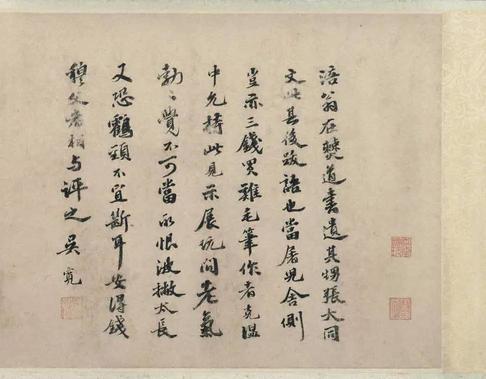 涪翁在僰道書遺其甥張大同
文此其後跋語也當屠兒舍側
豈亦三錢買雞毛筆作者克溫
中允持此見示展玩間老氣
勃々覺不可當所恨波撇太長
又恐鶴頸不宜斷耳安得錢
穆父者相與評之 吳寬